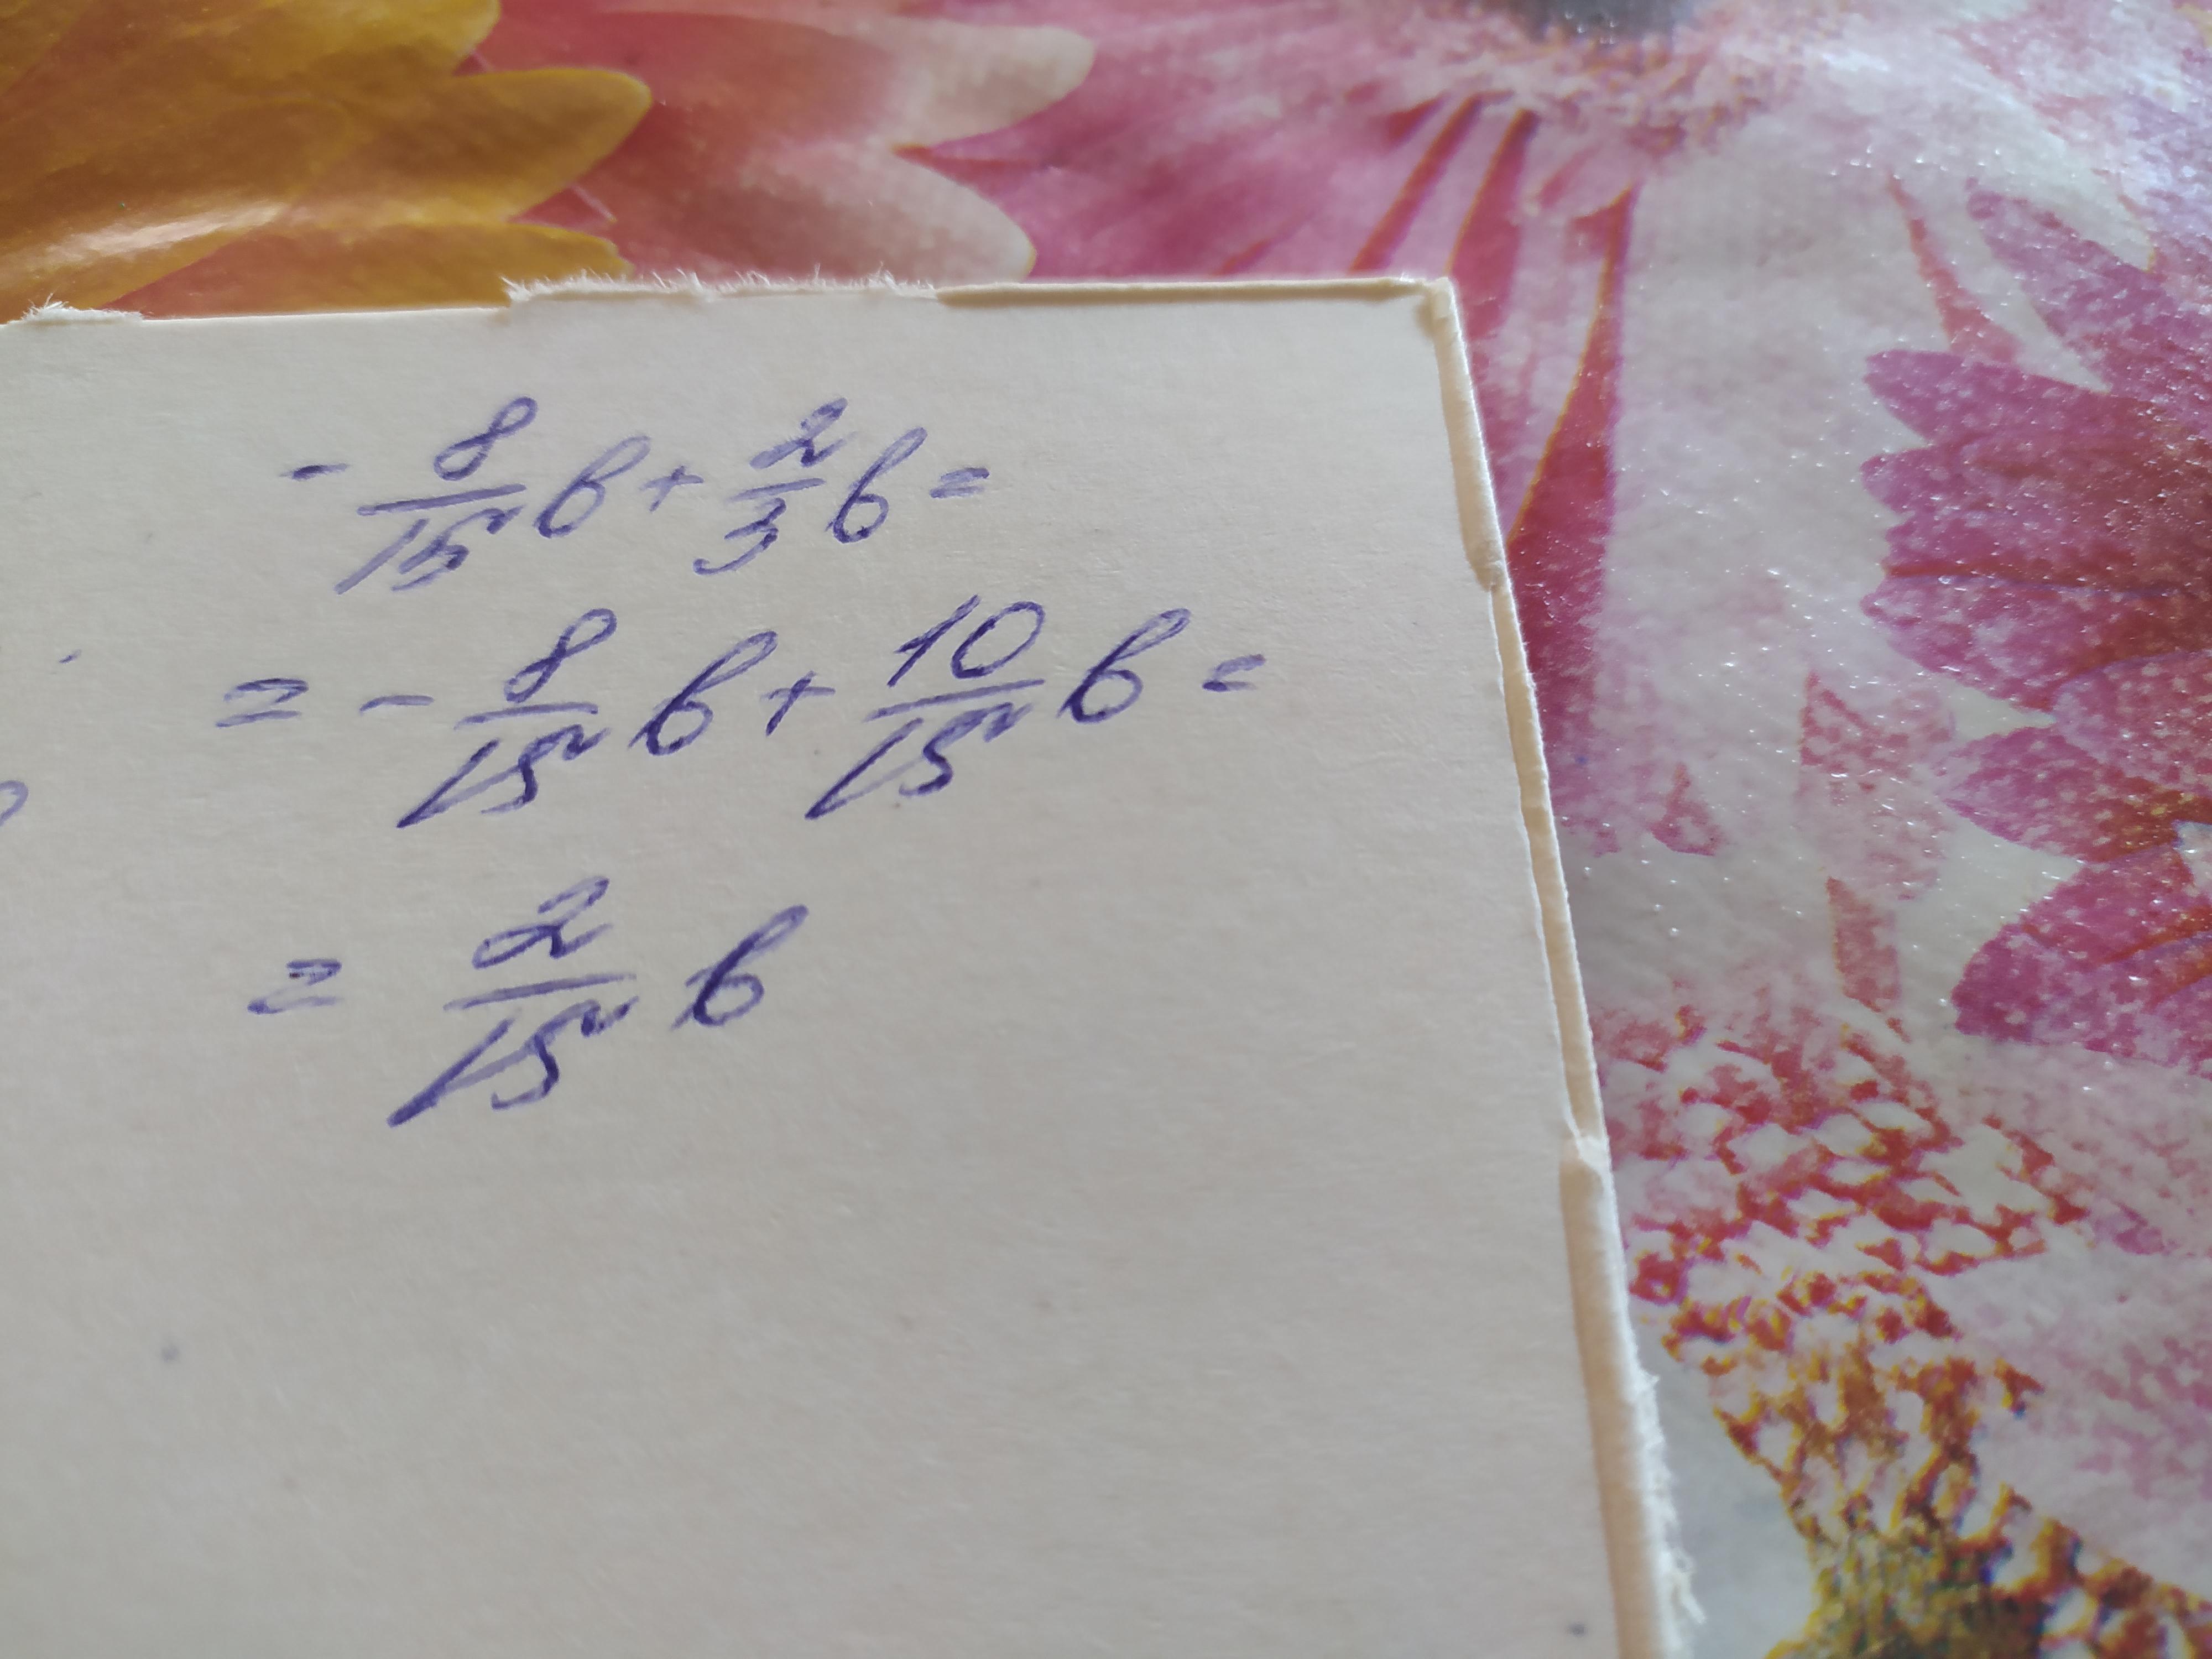 - 8/15 b + 2/3 b =
= - 8/15 b + 10/15 b =
= 2/15 b